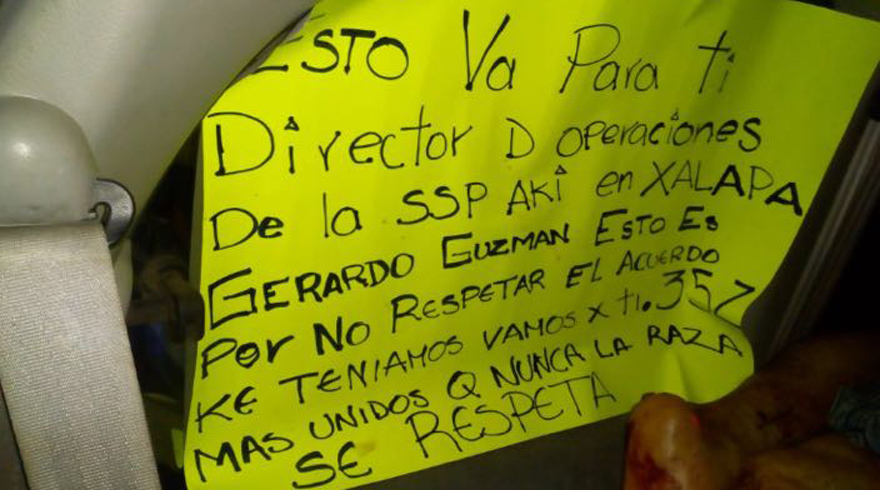 ESTO Va Para ti
Director D operaciones
De la SSP AKi en XALAPA
GERARDO GUZMAN ESTO ES
POR NO RESPETAR EL ACUERDO
KE TENIAMOS VAMOS X ti. 35Z
MAS UNIDOS Q NUNCA LA RAZA
SE RESPETA